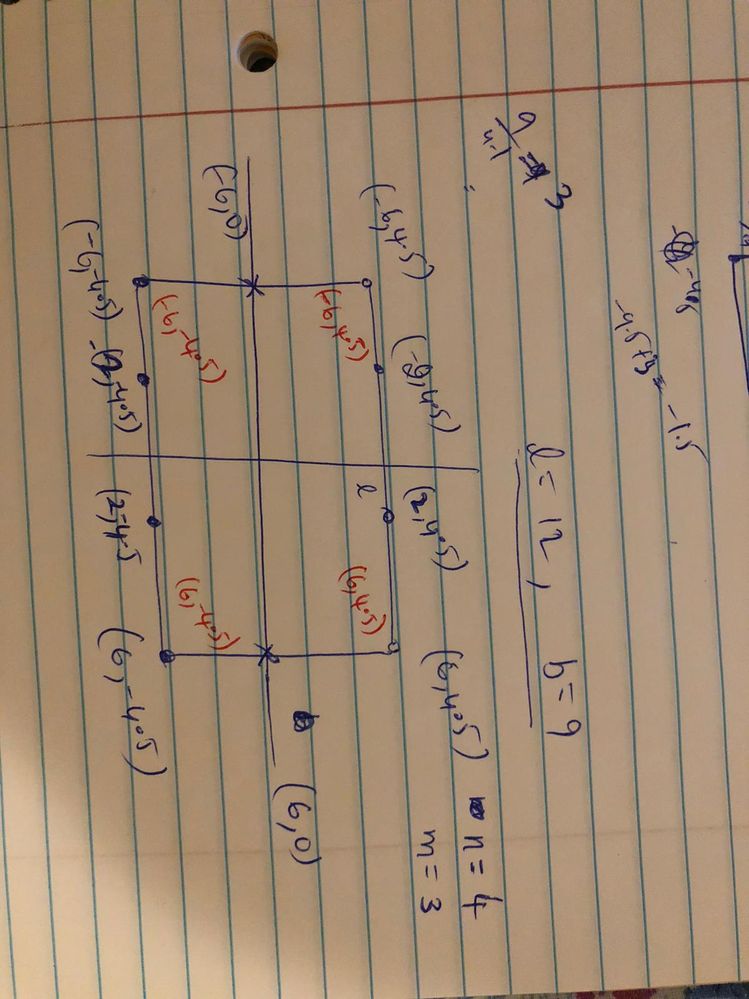 -4.5
-4.5+3 = -1.5
9/4-1 = 3
l = 12, b = 9
n = 4
m = 3
(-6,4.5) (-2,4.5) (2,4.5) (6,4.5)
l
(-6,4.5) (6,4.5)
(-6,0) (6,0)
(-6,-4.5) (6,-4.5)
(-6,-4.5) -2,-4.5) (2,-4.5 (6,-4.5)